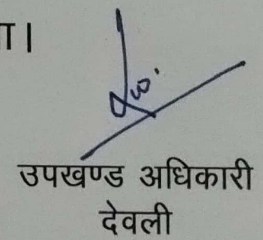 ा।
उपखण्ड अधिकारी
देवली